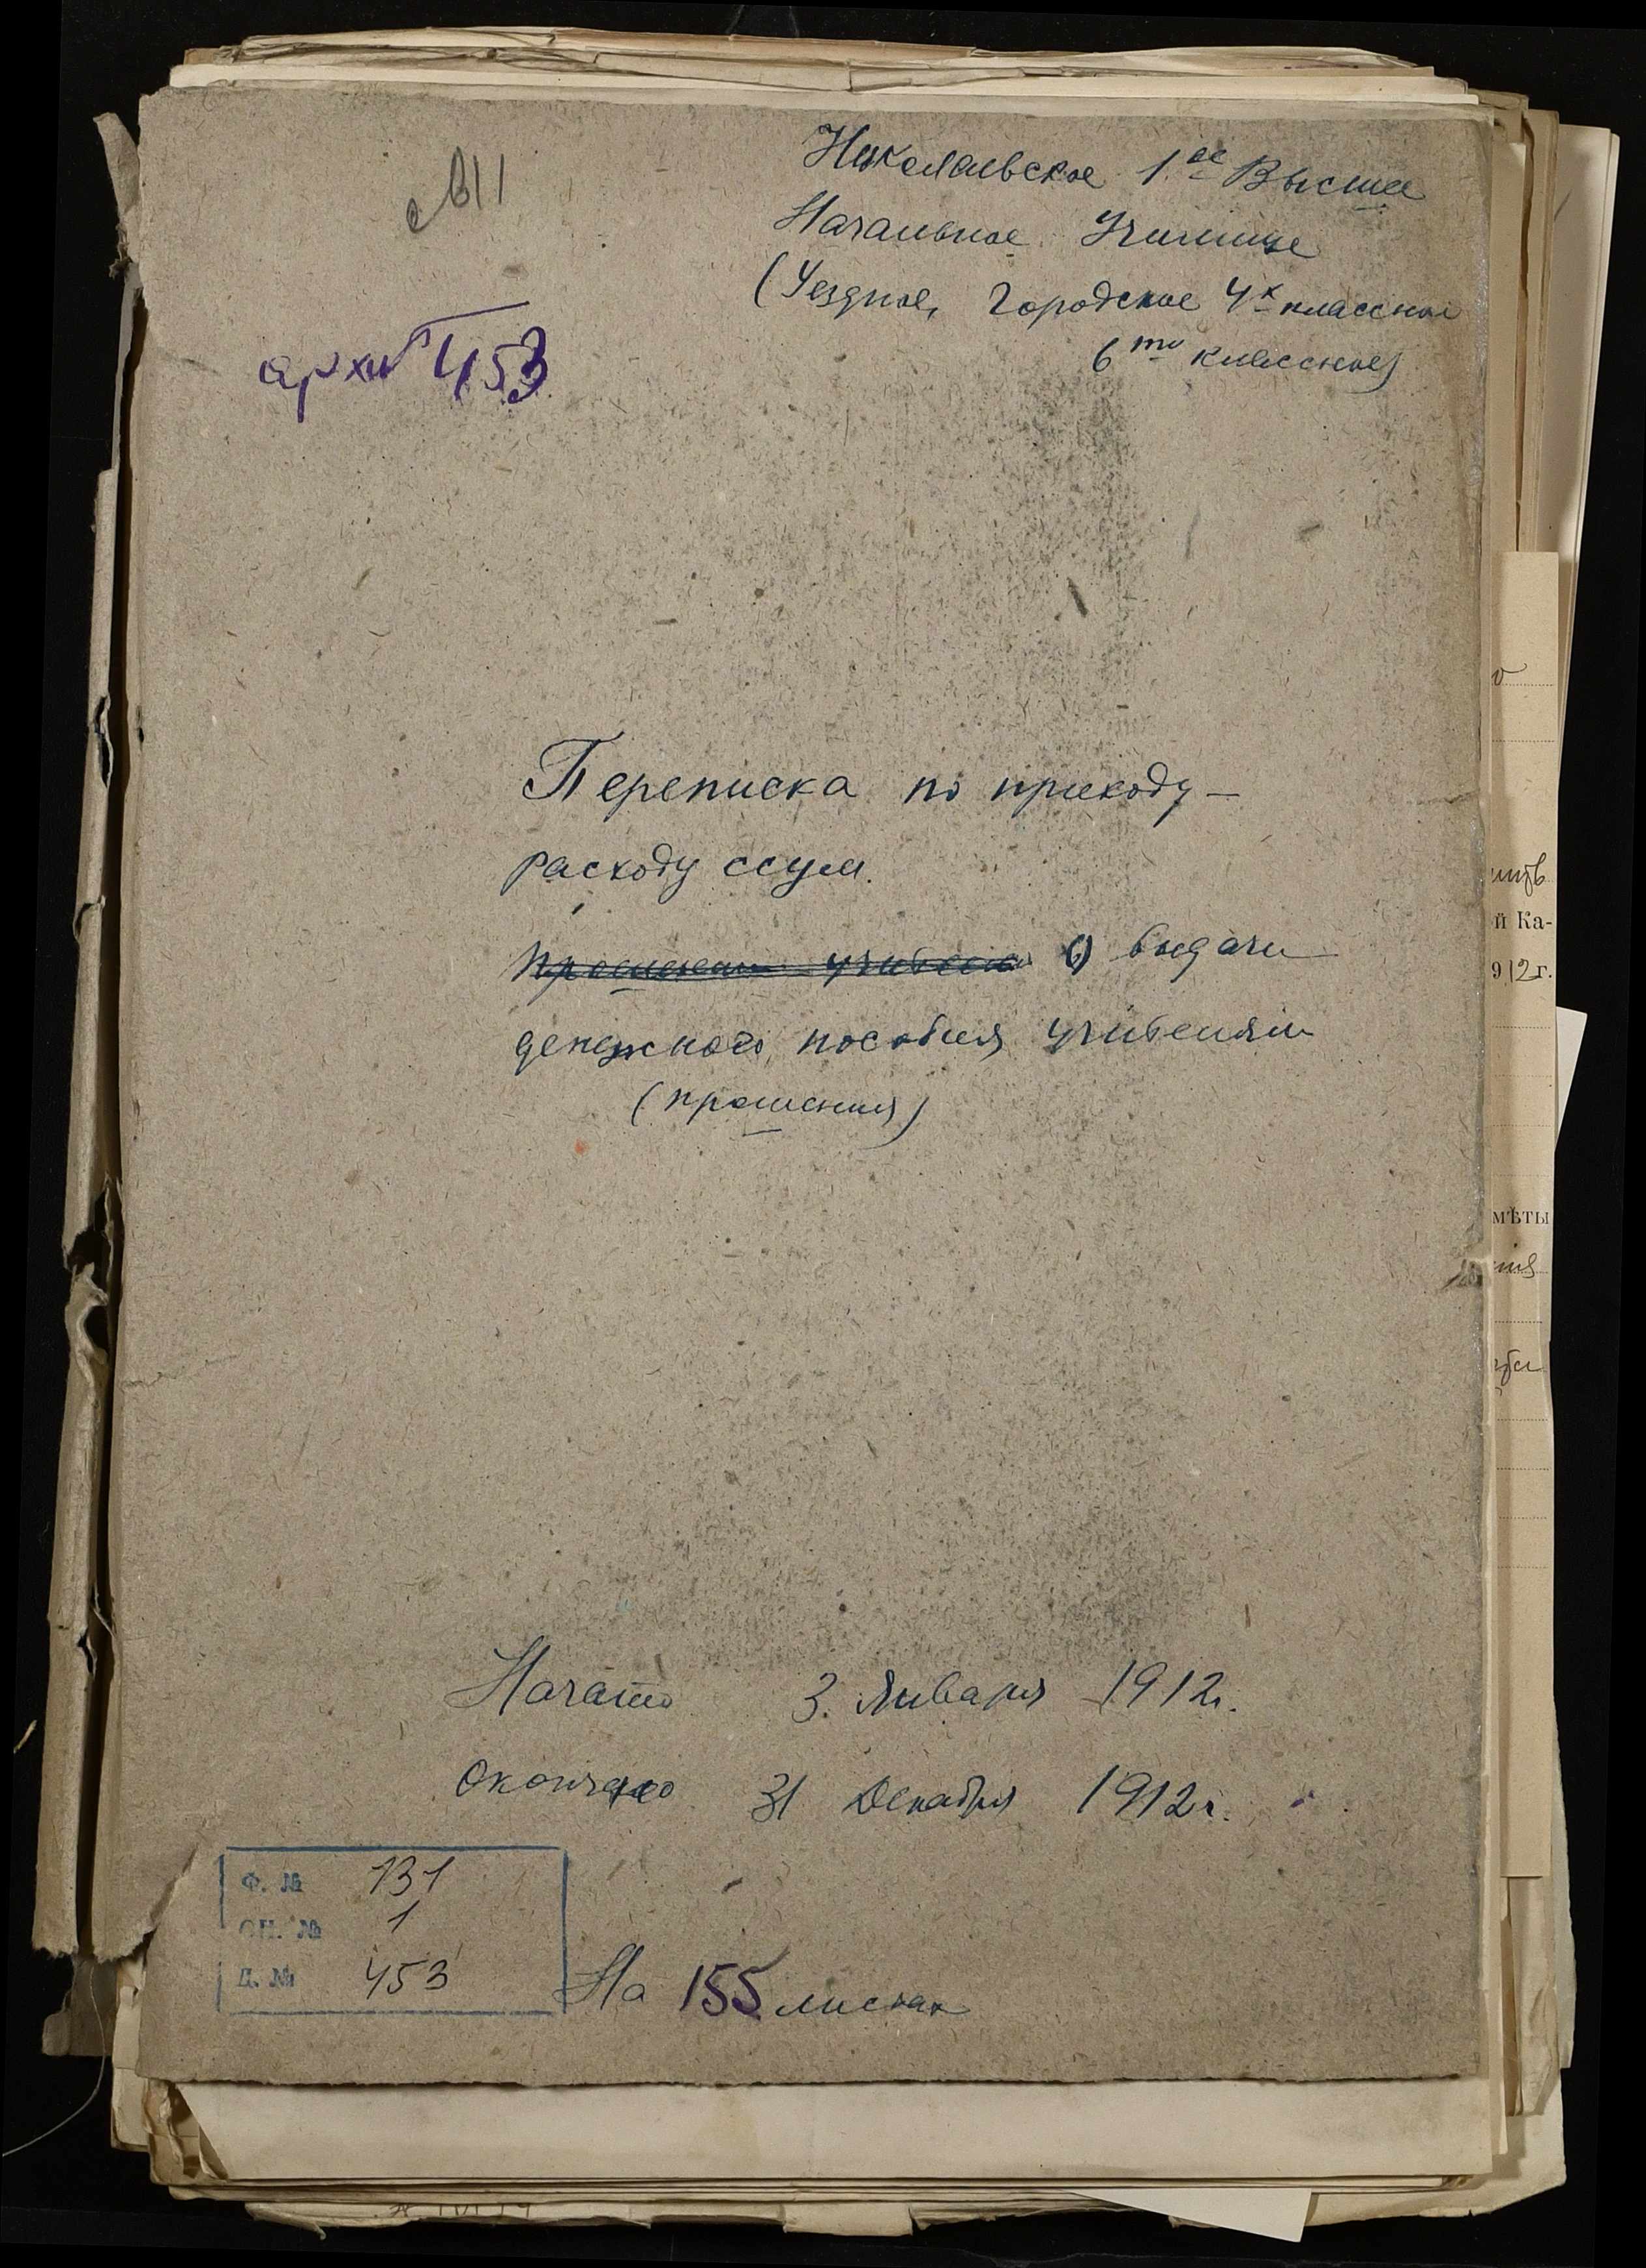 №11
Николаевское 1ое Высшее
Начальное Училище
(Уездное, Городское 4х классное
6ти классное)
архив 453
Переписка по приходу-
расходу ссум.
О выдачи
денежного пособия учителям
(прошения)
Начато 3. Января 1912г.
Окончено 31 Декабря 1912г.
Ф. № 131
ОП. № 1
Д. № 453
На 155 листах
й Ка-
912г.
мѣты